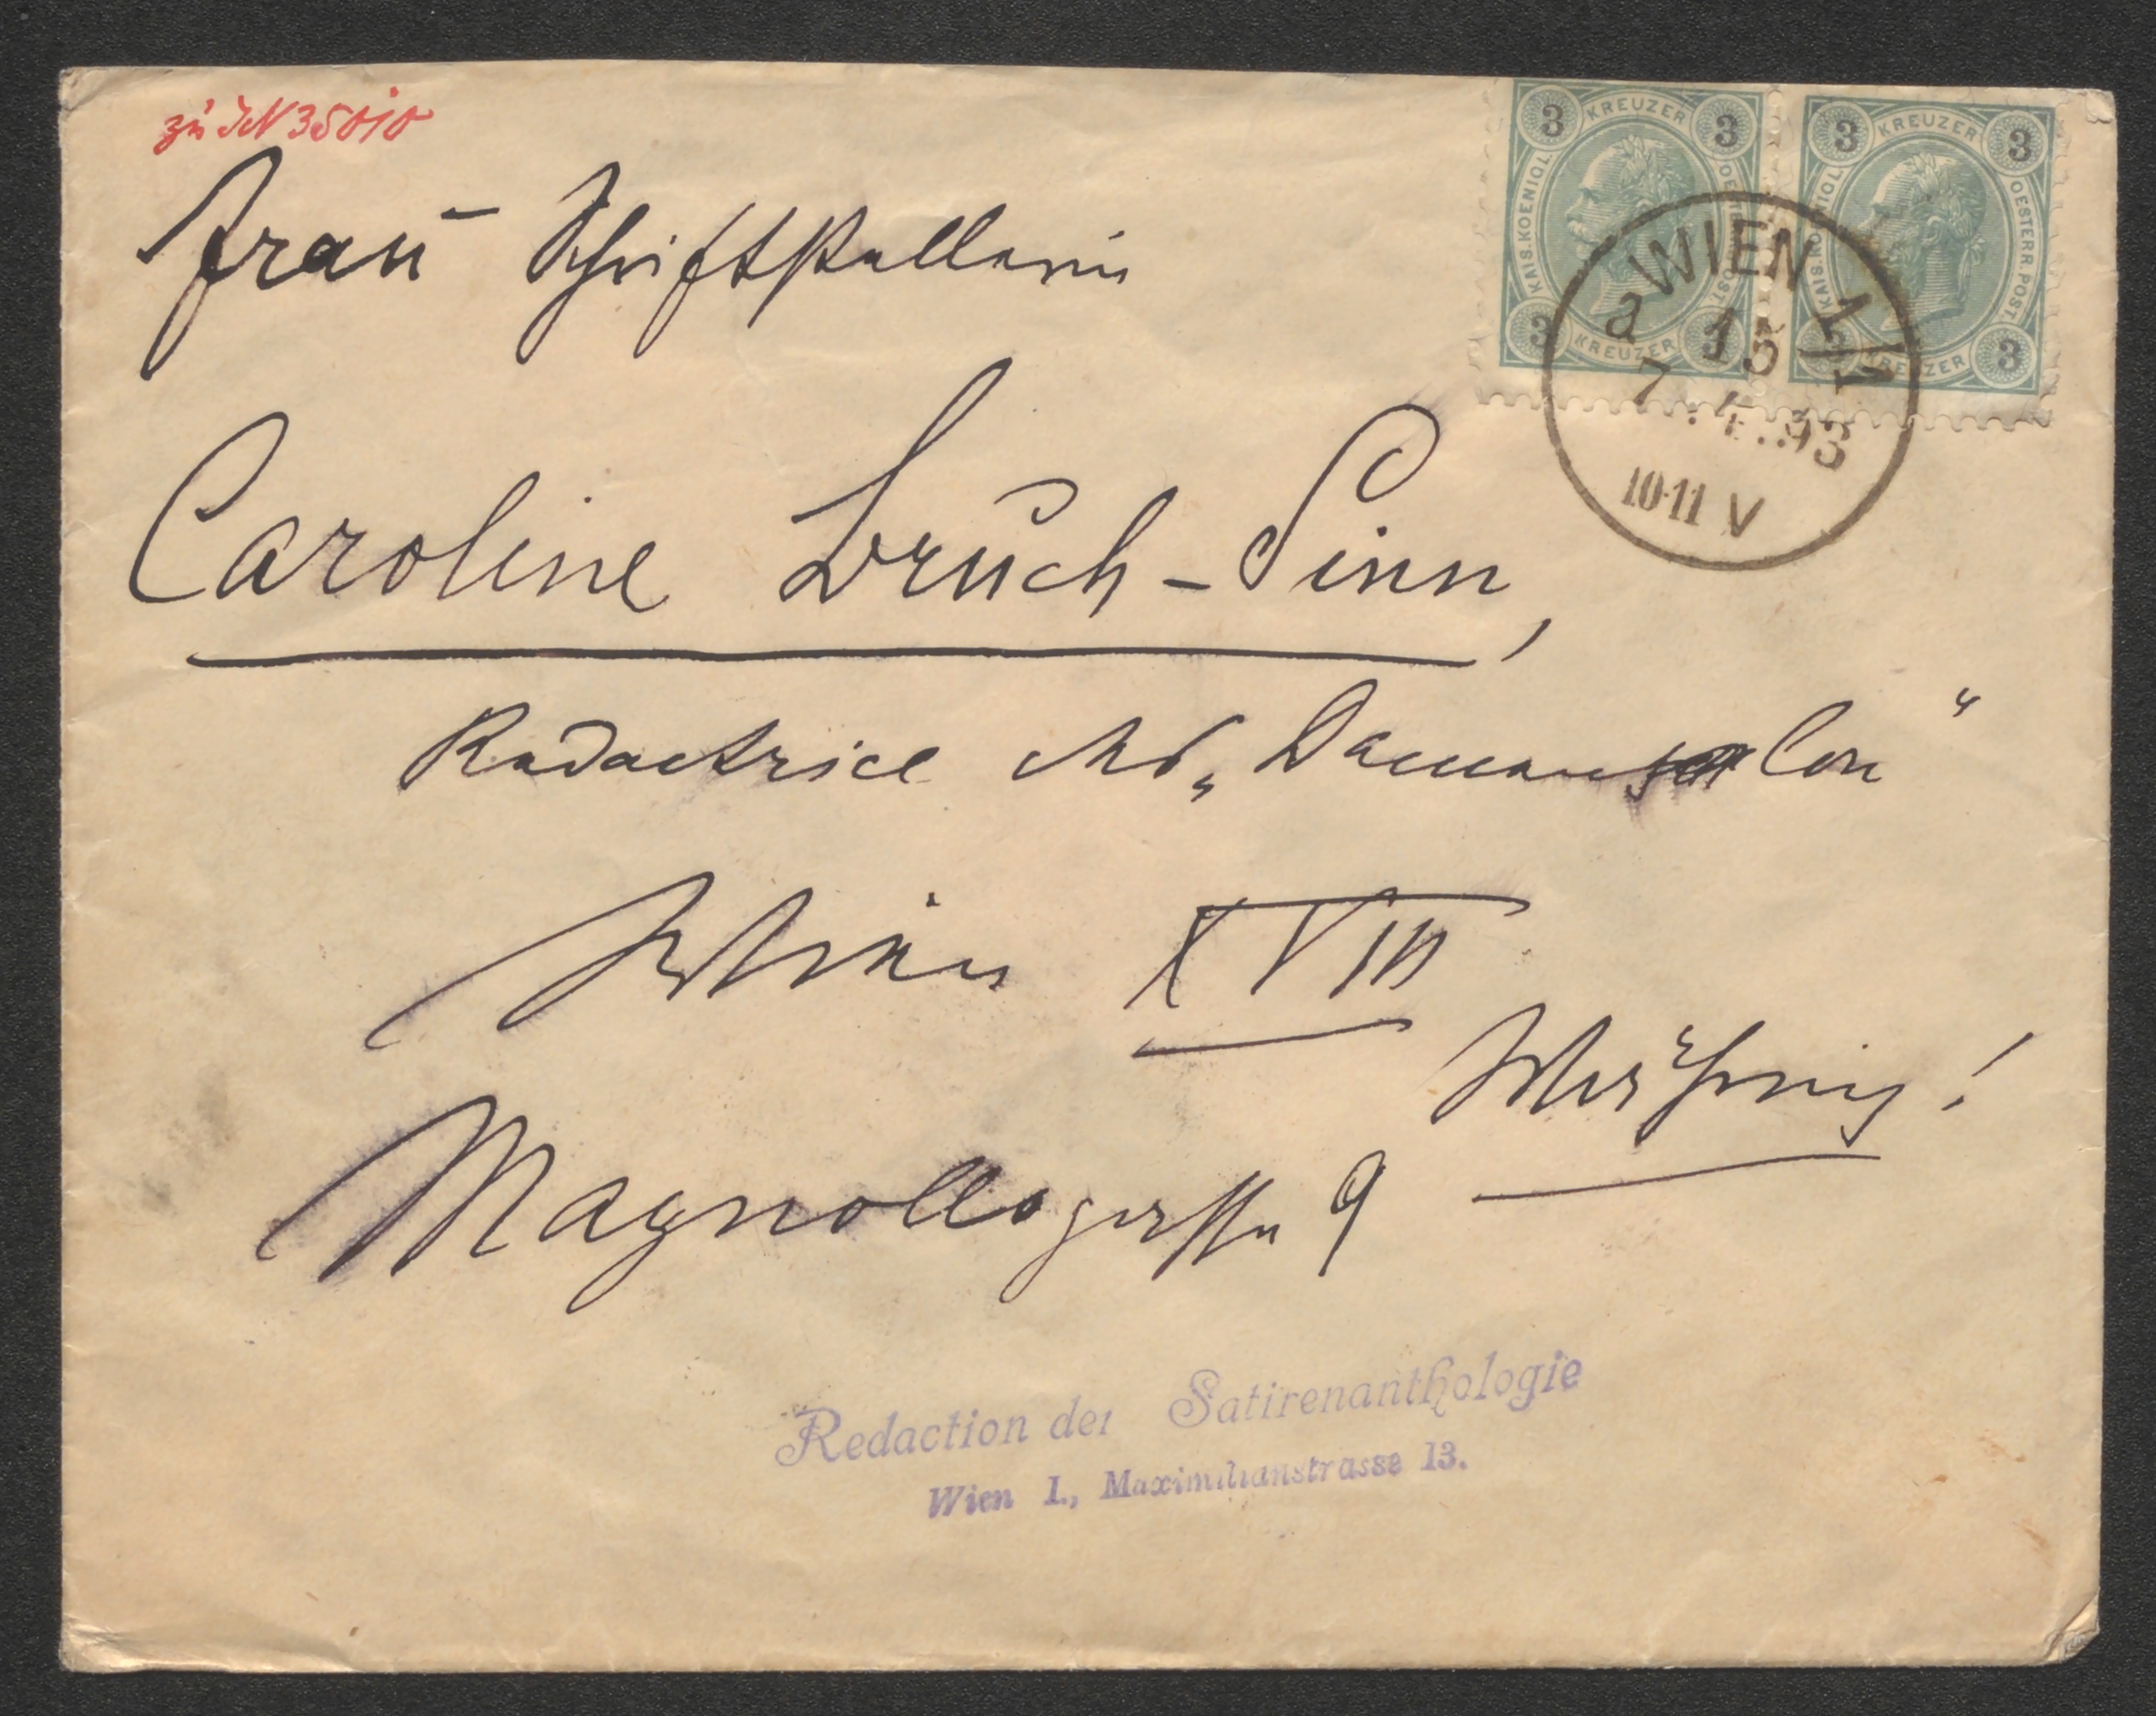 zu JN 35010
Frau Schriftstellerin
Caroline Bruch-Sinn,
Redactrice des „Damensalon“
Wien XVIII
Währing!
Magnollagasse 9
Redaction der Satirenanthologie
Wien I., Maximilianstrasse 13.
3 KREUZER 3
KAIS. KOENIGL. OESTERR. POST.
3 KREUZER 3
3 KREUZER 3
KAIS. KOENIGL. OESTERR. POST.
3 KREUZER 3
WIEN 1/1
a 13
7. 4. 93
10-11 V